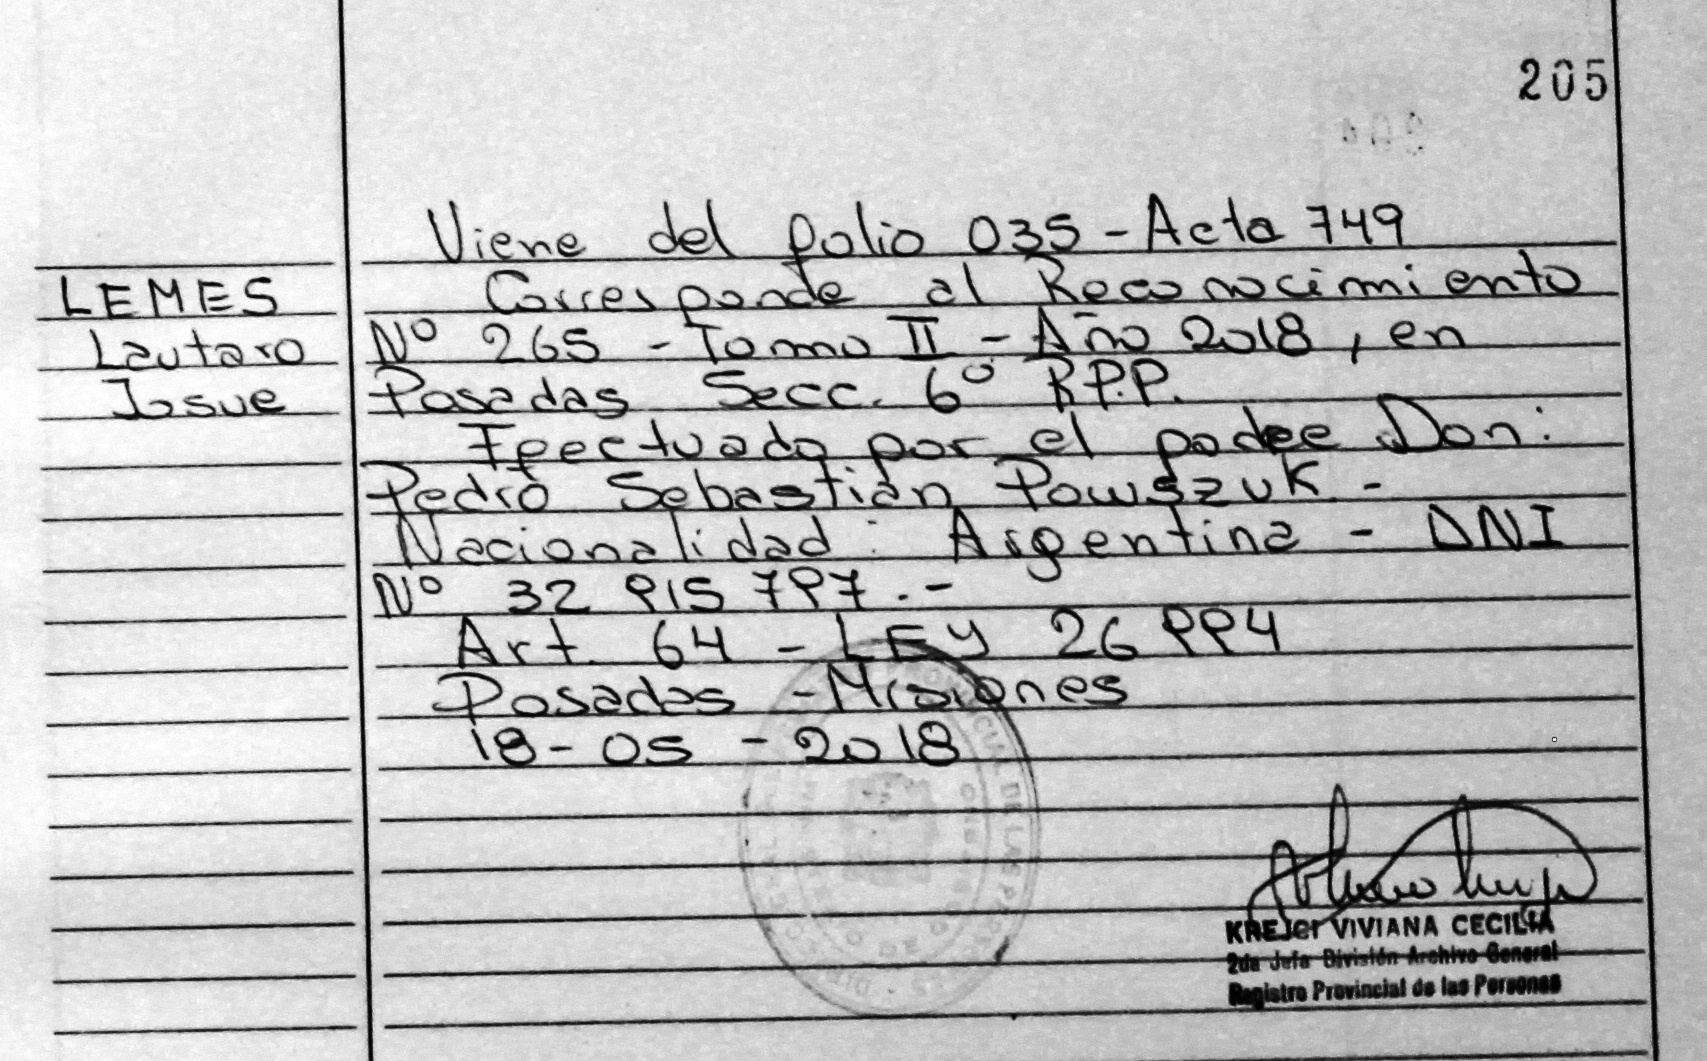 205
Viene del folio 035 - Acta 749
LEMES
Lautaro
Josue
Corresponde al Reconocimiento
Nº 265 - Tomo II - Año 2018, en
Posadas Secc. 6º R.P.P.
Efectuado por el padre Don:
Pedro Sebastián Powszuk. -
Nacionalidad: Argentina - DNI
Nº 32 915 797. -
Art. 64 - LEY 26 994
Posadas - Misiones
18-05-2018
DE LAS PERSONAS
KREJCI VIVIANA CECILIA
2da Jefa División Archivo General
Registro Provincial de las Personas